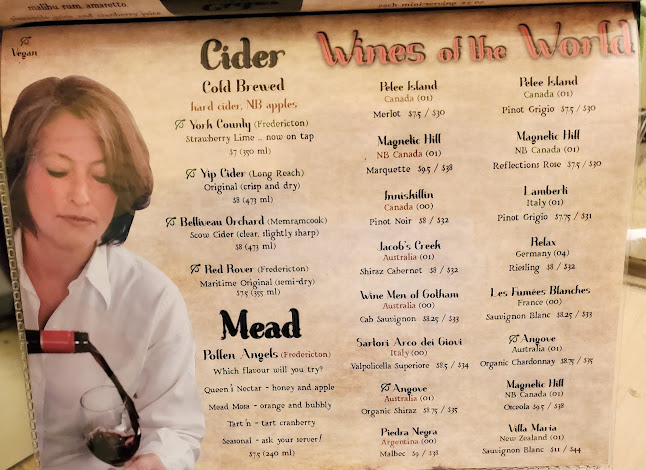 malibu rum, amaretto,
each mini-serving
Vegan
Cider
Cold Brewed
hard cider, NB apples
York County (Fredericton)
Strawberry Lime ... now on tap
$7 (350 ml)
Yip Cider (Long Reach)
Original (crisp and dry)
$8 (473 ml)
Belliveau Orchard (Memramcook)
Scow Cider (clear, slightly sharp)
$8 (473 ml)
Red Rover (Fredericton)
Maritime Original (semi-dry)
$7.5 (355 ml)
Mead
Pollen Angels (Fredericton)
Which flavour will you try?
Queen's Nectar - honey and apple
Mead Mosa - orange and bubbly
Tart n' - tart cranberry
Seasonal - ask your server!
$7.5 (240 ml)
Wines of the World
Pelee Island
Canada (01)
Merlot $7.5 / $30
Magnetic Hill
NB Canada (01)
Marquette $9.5 / $38
Inniskillin
Canada (00)
Pinot Noir $8 / $32
Jacob's Creek
Australia (01)
Shiraz Cabernet $8 / $32
Wine Men of Gotham
Australia (00)
Cab Sauvignon $8.25 / $33
Sartori Arco dei Giovi
Italy (00)
Valpolicella Superiore $8.5 / $34
Angove
Australia (01)
Organic Shiraz $8.75 / $35
Piedra Negra
Argentina (00)
Malbec $9 / $38
Pelee Island
Canada (01)
Pinot Grigio $7.5 / $30
Magnetic Hill
NB Canada (01)
Reflections Rose $7.5 / $30
Lamberti
Italy (01)
Pinot Grigio $7.75 / $31
Relax
Germany (04)
Riesling $8 / $32
Les Fumées Blanches
France (00)
Sauvignon Blanc $8.25 / $33
Angove
Australia (01)
Organic Chardonnay $8.75 / $35
Magnetic Hill
NB Canada (01)
Osceola $9.5 / $38
Villa Maria
New Zealand (01)
Sauvignon Blanc $11 / $44